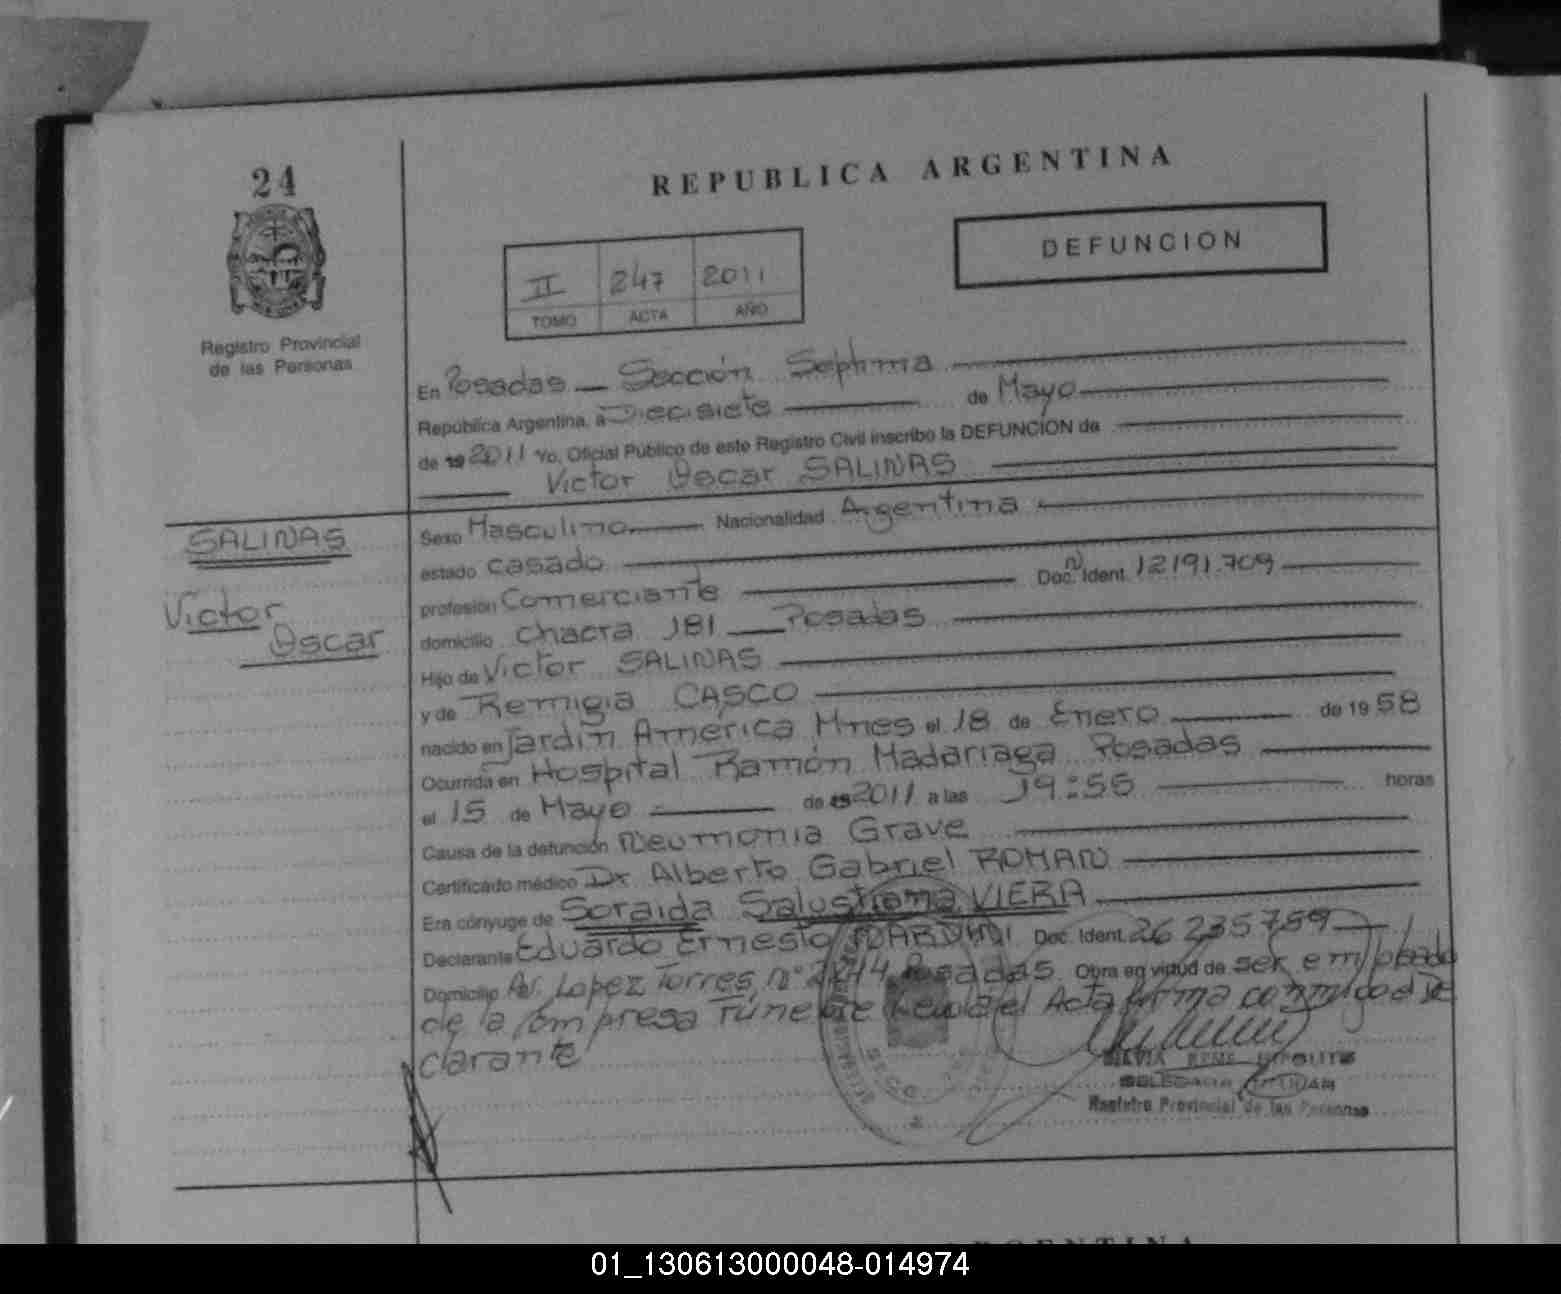 24
REPUBLICA ARGENTINA
DEFUNCION
II 247 2011
TOMO ACTA AÑO
Registro Provincial
de las Personas
En Posadas - Sección Septima
República Argentina, a Diecisiete de Mayo
de 19 2011 Yo, Oficial Público de este Registro Civil inscribo la DEFUNCION de
Victor Oscar SALINAS
SALINAS
Victor
Oscar
Sexo Masculino Nacionalidad Argentina
estado casado
profesión Comerciante Doc. Ident. 12191.709
domicilio chacra 181 - Posadas
Hijo de Victor SALINAS
y de Remigia CASCO
nacido en Jardín América Mnes el 18 de Enero de 1958
Ocurrida en Hospital Ramón Madariaga Posadas
el 15 de Mayo de 19 2011 a las 19:55 horas
Causa de la defunción Neumonia Grave
Certificado médico Dr Alberto Gabriel ROMAN
Era cónyuge de Soraida Salustiana VIERA
Declarante Eduardo Ernesto Doc. Ident. 26 235759
Domicilio Av. Lopez Torres N° Posadas Obra en virtud de ser empleado
de la Empresa Fúnebre Leida el Acta firma conmigo el De
clarante
Registro Provincial de las Personas
ARGENTINA
01_130613000048-014974